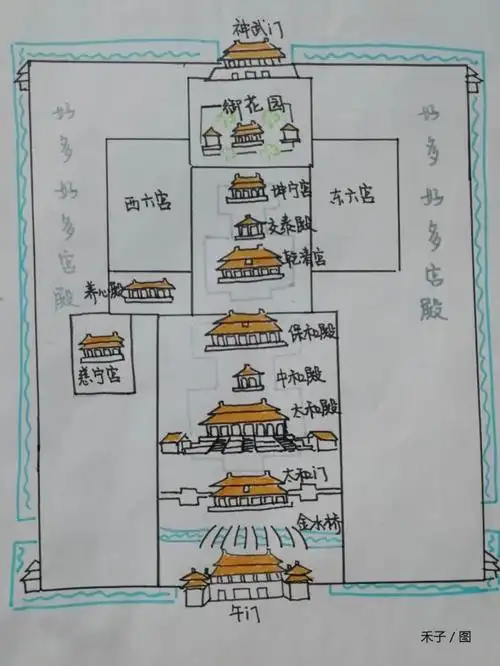 神武门
御花园
好多好多宫殿
好多好多宫殿
西六宫
坤宁宫
东六宫
交泰殿
乾清宫
养心殿
保和殿
慈宁宫
中和殿
太和殿
太和门
金水桥
午门
禾子 / 图